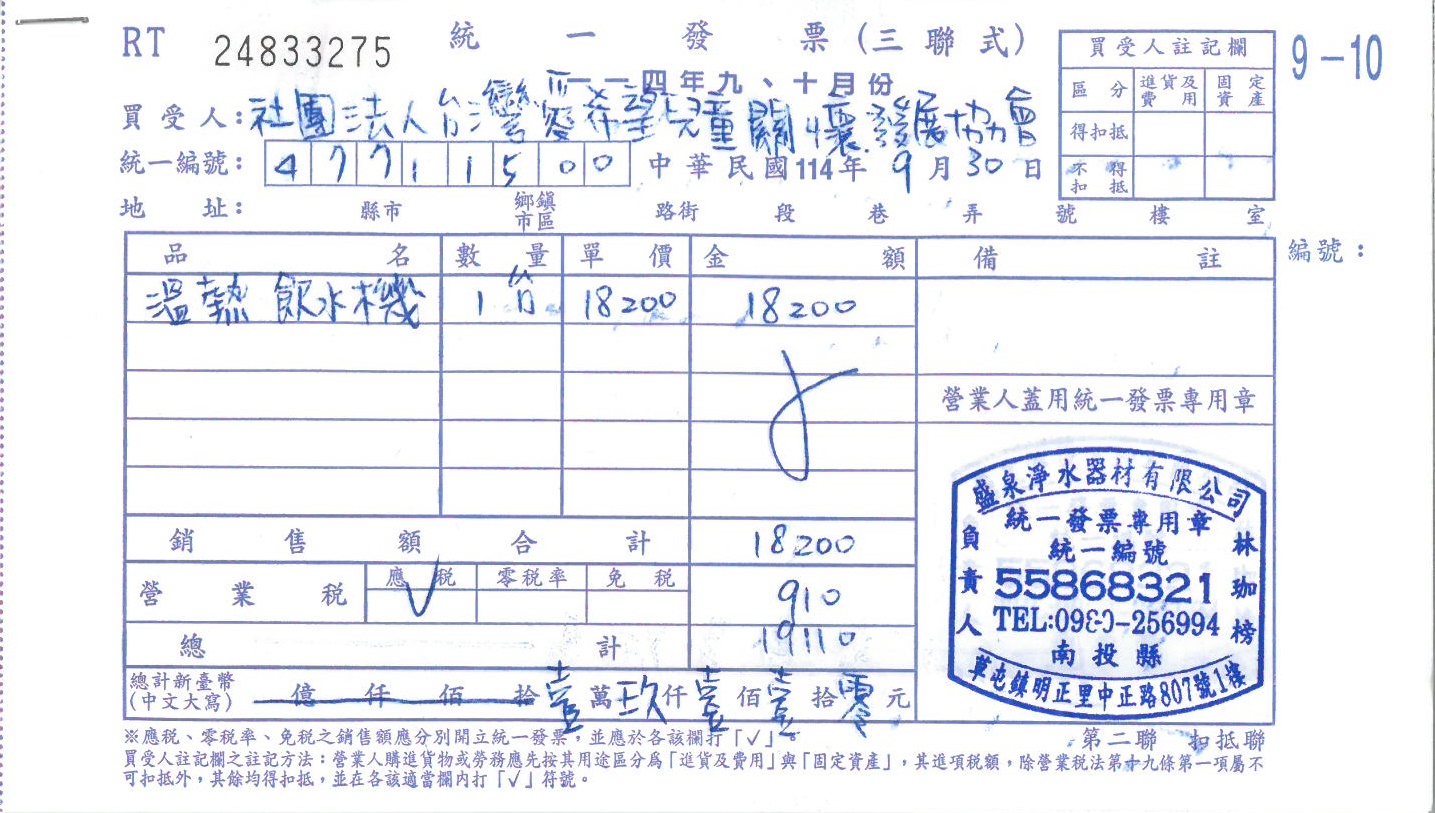 RT 24833275 統一發票(三聯式) 9-10
一一四年九、十月份
買受人註記欄
區分 進貨及費用 固定資產
得扣抵
不得扣抵
買受人:社團法人台灣愛希望兒童關懷發展協會
統一編號:47711500 中華民國114年9月30日
地址: 縣市 鄉鎮市區 路街 段 巷 弄 號 樓 室
品名 數量 單價 金額 備註 編號:
溫熱飲水機 1台 18200 18200
營業人蓋用統一發票專用章
銷售額合計 18200
營業稅 應稅 V 零稅率 免稅 910
總計 19110
總計新臺幣(中文大寫) 億仟佰拾壹萬玖仟壹佰壹拾零元
盛泉淨水器材有限公司
統一發票專用章
統一編號
55868321
TEL:0980-256994
南投縣
草屯鎮明正里中正路807號1樓
負責人 林珈榜
※應稅、零稅率、免稅之銷售額應分別開立統一發票,並應於各該欄打「√」。
第二聯 扣抵聯
買受人註記欄之註記方法:營業人購進貨物或勞務應先按其用途區分為「進貨及費用」與「固定資產」,其進項稅額,除營業稅法第十九條第一項屬不
可扣抵外,其餘均得扣抵,並在各該適當欄內打「√」符號。